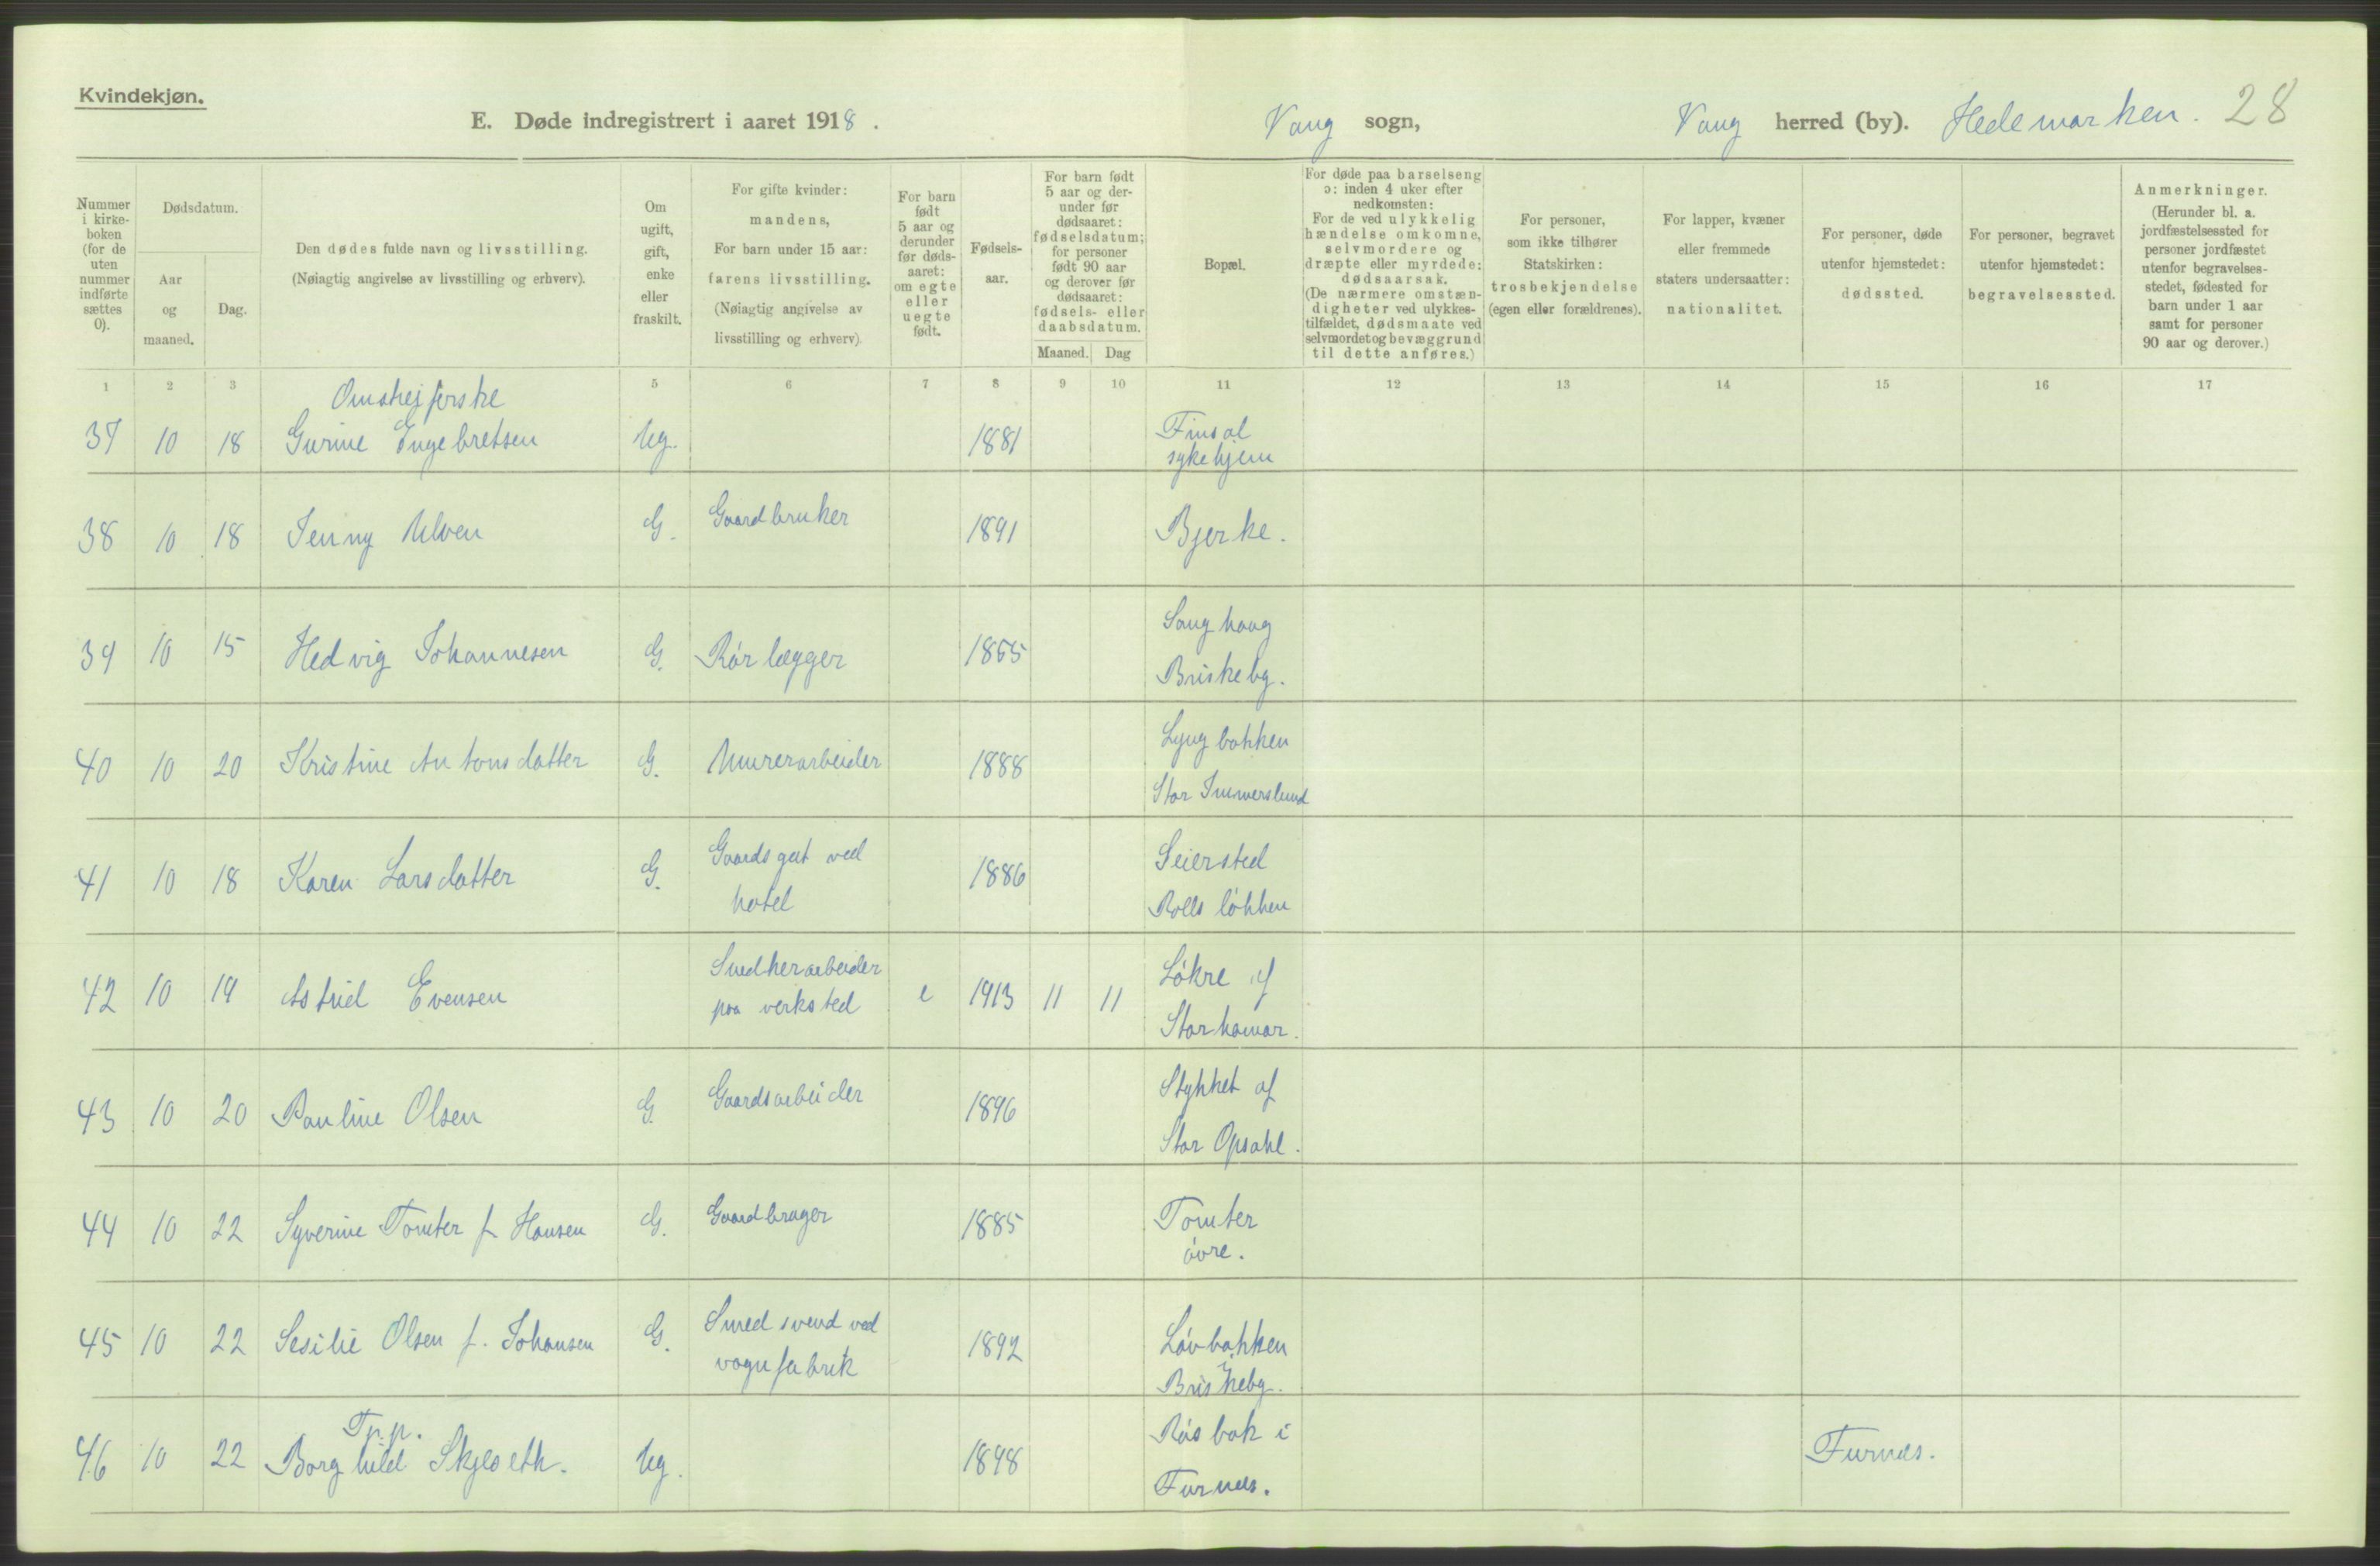 Kvindekjøn.
E. Døde indregistrert i aaret 1918. Vang sogn, Vang herred (by). Hedemarken. 28
Nummer i kirke- boken (for de uten nummer indførte sættes 0).
Dødsdatum.
Aar og maaned.
Dag.
Den dødes fulde navn og livsstilling.
(Nøiagtig angivelse av livsstilling og erhverv).
Om ugift, gift, enke eller fraskilt.
For gifte kvinder:
mandens,
For barn under 15 aar:
farens livsstilling.
(Nøiagtig angivelse av
livsstilling og erhverv)
For barn født 5 aar og derunder før døds- aaret: om egte eller uegte født.
Fødsels- aar.
For barn født
5 aar og der-
under før
dødsaaret:
fødselsdatum;
for personer
født 90 aar
og derover før
dødsaaret:
fødsels- eller
daabsdatum.
Maaned. Dag
Bopæl.
For døde paa barselseng
ɔ: inden 4 uker efter
nedkomsten:
For de ved ulykkelig
hændelse omkomne,
selvmordere og
dræpte eller myrdede:
dødsaarsak.
(De nærmere omstæn-
digheter ved ulykkes-
tilfældet, dødsmaate ved
selvmordet og bevæggrund
til dette anføres.)
For personer,
som ikke tilhører
Statskirken:
trosbekjendelse
(egen eller forældrenes).
For lapper, kvæner
eller fremmede
staters undersaatter:
nationalitet.
For personer, døde
utenfor hjemstedet:
dødssted.
For personer, begravet
utenfor hjemstedet:
begravelsessted.
Anmerkninger.
(Herunder bl. a.
jordfæstelsessted for
personer jordfæstet
utenfor begravelses-
stedet, fødested for
barn under 1 aar
samt for personer
90 aar og derover.)
1 2 3 5 6 7 8 9 10 11 12 13 14 15 16 17
37 10 18 Gurine Engebretsen Ug. 1881 Finsal
sykehjem
38 10 18 Jenny Ulven G. Gaardbruker 1891 Bjerke.
Saughaug
39 10 15 Hedvig Johannesen G. Rørlægger 1865
Briskeby.
Lyngbakken
40 10 20 Kristine Antonsdatter G. Murerarbeider 1888
Stor Immerslund
Gaardsgut ved Seiersted
41 10 18 Karen Larsdatter G. 1886
hotel Rolls løkken
Snedkerarbeider Løkre af
42 10 19 Astrid Evensen paa verksted e 1913 11 11
Storhamar.
Gaardsarbeider Stykket af
43 10 20 Pauline Olsen G. 1896
Stor Opsahl.
44 10 22 Syverine Tomter f. Hansen G. Gaardbruger 1885 Tomter
øvre.
Smedsvend ved
45 10 22 Sesilie Olsen f. Johansen G. 1892 Løvbakken
vognfabrik Briskeby.
Tp.p. Røsbak i
46 10 22 Borghild Skjeseth. Ug. 1898 Furnes.
Furnes.